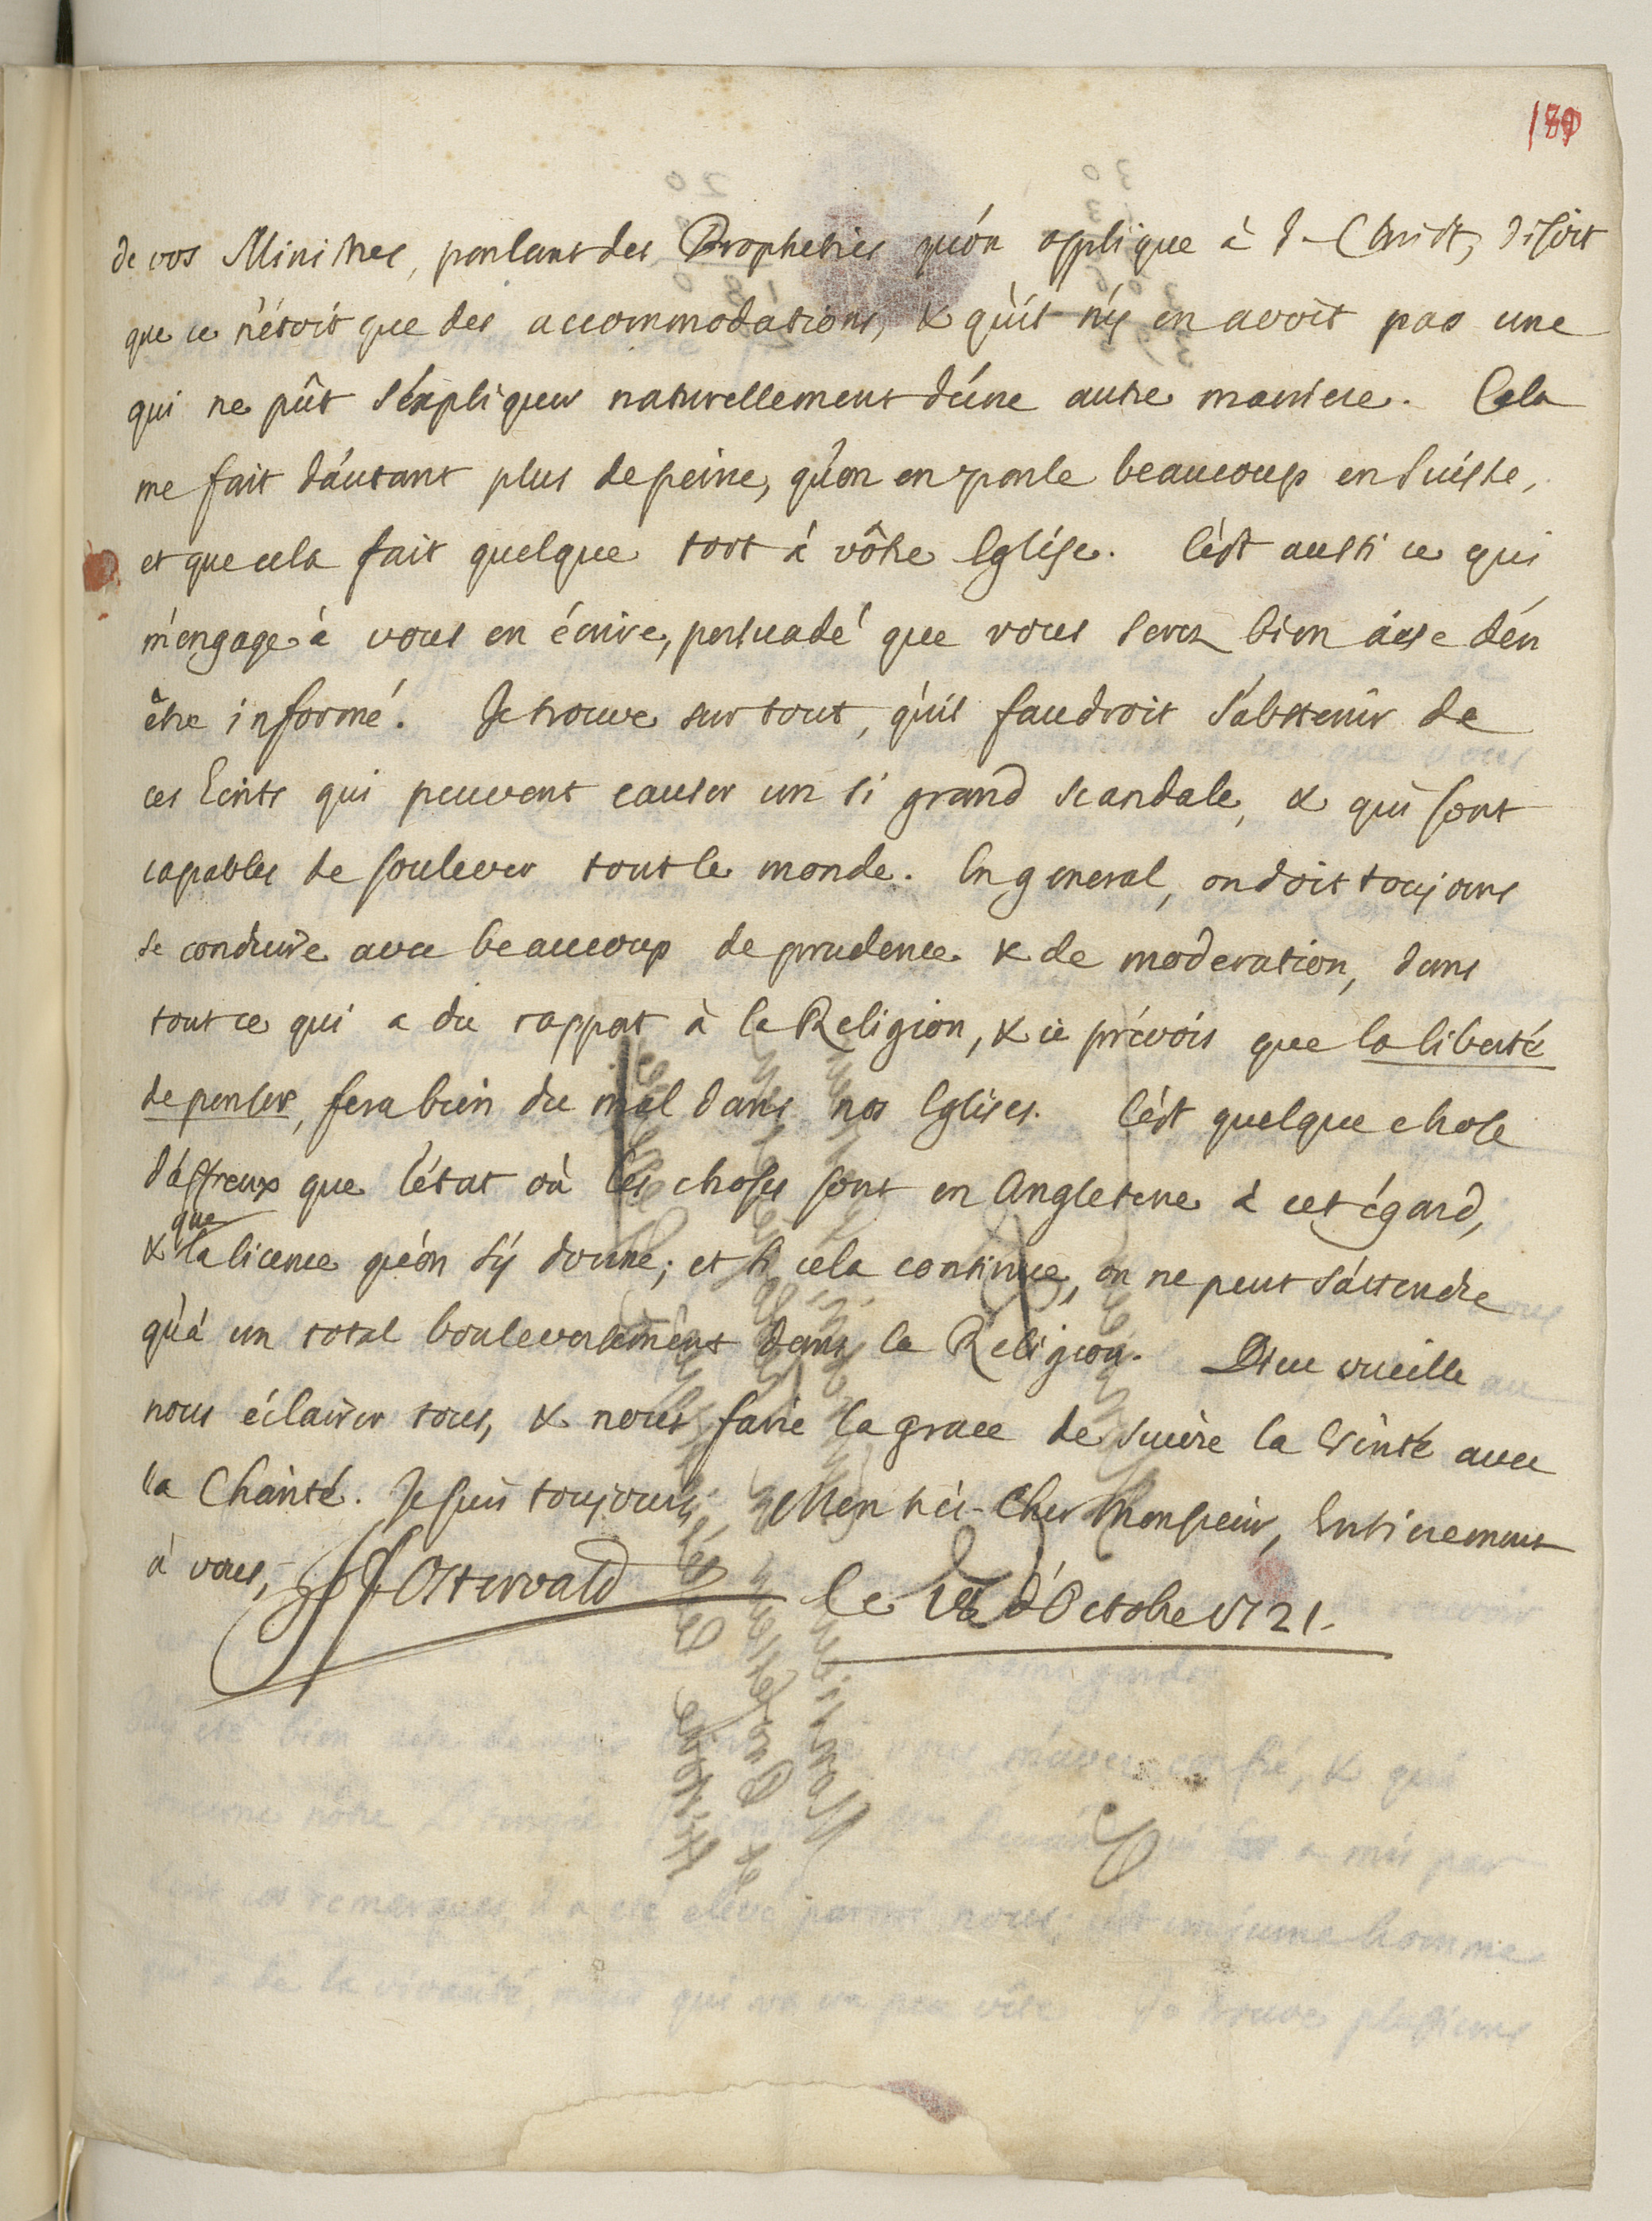 189
de vos Ministres, parlant des Propheties qu'on applique à J-Christ, disoit
que ce n'étoit que des accommodations, & qu'il n'y en avoit pas une
qui ne pût s'expliquer naturellement d'une autre maniere. Cela
me fait d'autant plus de peine, qu'on en parle beaucoup en Suisse,
et que cela fait quelque tort à vôtre Eglise. C'est aussi ce qui
m'engage à vous en écrire, persuadé que vous serez bien aise d'en
être informé. Je trouve sur tout, qu'il faudroit s'abstenir de
ces Ecrits qui peuvent causer un si grand scandale, & qui sont
capables de soulever tout le monde. En general, on doit toujours
se conduire avec beaucoup de prudence & de moderation, dans
tout ce qui a du rapport à la Religion, & je prévois que la liberté
de penser, fera bien du mal dans nos Eglises. C'est quelque chose
d'affreux que l'état où les choses sont en Angleterre à cet égard,
& que la licence qu'on s'y donne; et si cela continue, on ne peut s'attendre
qu'à un total bouleversement dans la Religion. Dieu vueille
nous éclairer tous, & nous faire la grace de suivre la Verité avec
la Charité. Je suis toujours, Mon très-Cher Monsieur, Entierement
à vous, JF Ostervald le 18 d'Octobre 1721.